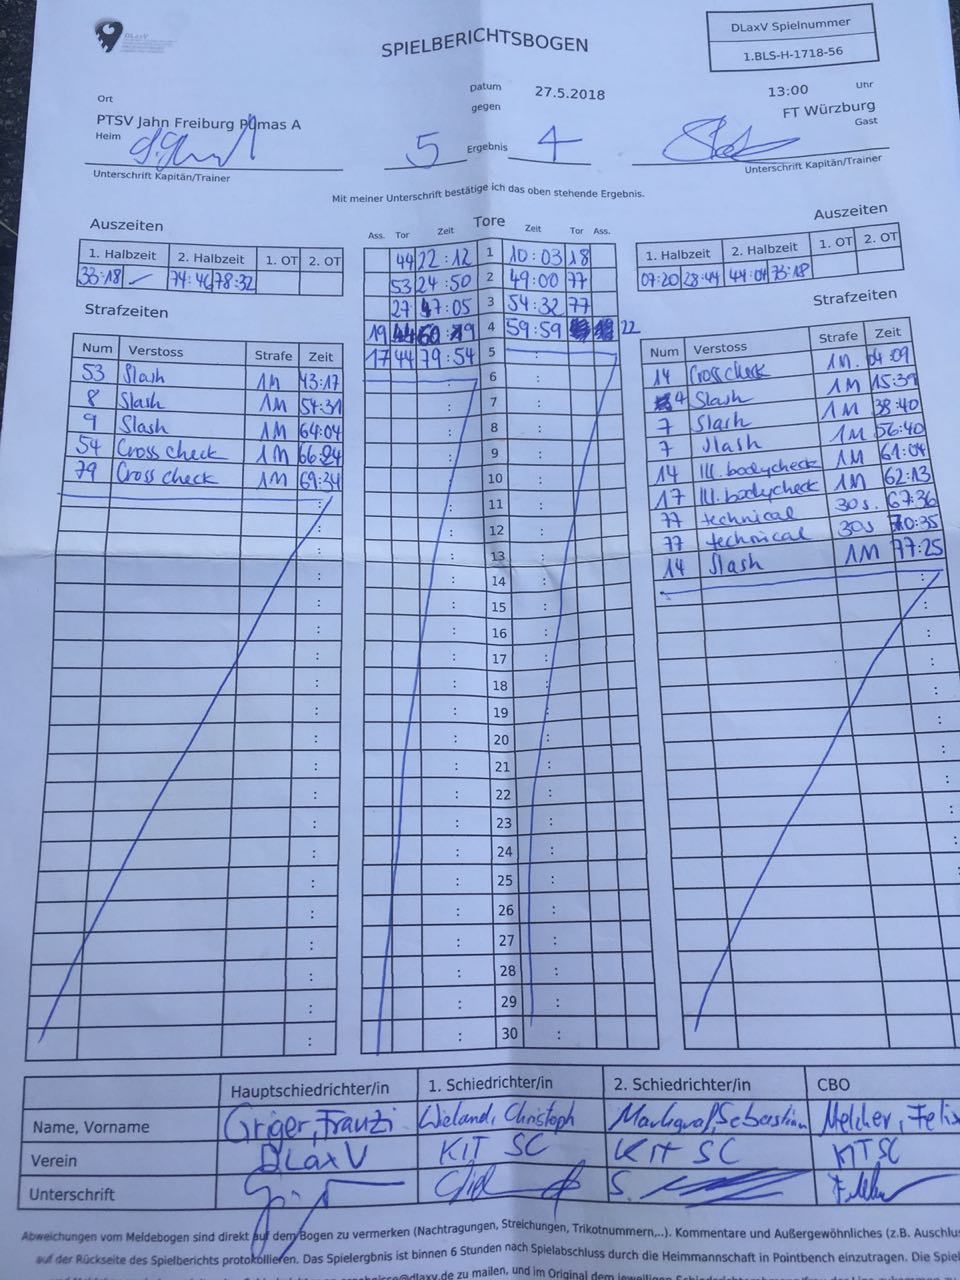 DLaxV
SPIELBERICHTSBOGEN
DLaxV Spielnummer
1.BLS-H-1718-56
Ort
Datum 27.5.2018 13:00 Uhr
gegen
PTSV Jahn Freiburg Pumas A FT Würzburg
Heim Gast
5 Ergebnis 4
Unterschrift Kapitän/Trainer Unterschrift Kapitän/Trainer
Mit meiner Unterschrift bestätige ich das oben stehende Ergebnis.
Auszeiten
1. Halbzeit 2. Halbzeit 1. OT 2. OT
33:18 74:46 78:32
Strafzeiten
Num Verstoss Strafe Zeit
53 Slash 1M 43:17
8 Slash 1M 54:31
9 Slash 1M 64:04
54 Cross check 1M 66:24
79 Cross check 1M 69:34
Tore
Ass. Tor Zeit Zeit Tor Ass.
44 22:12 1 10:03 18
53 24:50 2 49:00 77
27 47:05 3 54:32 77
19 44 60:19 4 59:59 22
17 44 79:54 5 :
: 6 :
: 7 :
: 8 :
: 9 :
: 10 :
: 11 :
: 12 :
: 13 :
: 14 :
: 15 :
: 16 :
: 17 :
: 18 :
: 19 :
: 20 :
: 21 :
: 22 :
: 23 :
: 24 :
: 25 :
: 26 :
: 27 :
: 28 :
: 29 :
: 30 :
Auszeiten
1. Halbzeit 2. Halbzeit 1. OT 2. OT
07:20 28:44 44:04 73:18
Strafzeiten
Num Verstoss Strafe Zeit
14 Cross check 1M. 04:09
4 Slash 1M 15:39
7 Slash 1M 38:40
7 Slash 1M 56:40
14 Ill. bodycheck 1M 61:04
17 Ill. bodycheck 1M 62:13
77 technical 30s. 67:36
77 technical 30s 70:35
14 Slash 1M 77:25
Hauptschiedrichter/in 1. Schiedrichter/in 2. Schiedrichter/in CBO
Name, Vorname Griger, Franzi Wieland, Christoph Markgraf, Sebastian Melcher, Felix
Verein DLaxV KIT SC KIT SC KIT SC
Unterschrift
Abweichungen vom Meldebogen sind direkt auf dem Bogen zu vermerken (Nachtragungen, Streichungen, Trikotnummern,..). Kommentare und Außergewöhnliches (z.B. Auschlus
auf der Rückseite des Spielberichts protokollieren. Das Spielergbnis ist binnen 6 Stunden nach Spielabschluss durch die Heimmannschaft in Pointbench einzutragen. Die Spiel
@dlaxv.de zu mailen, und im Original dem